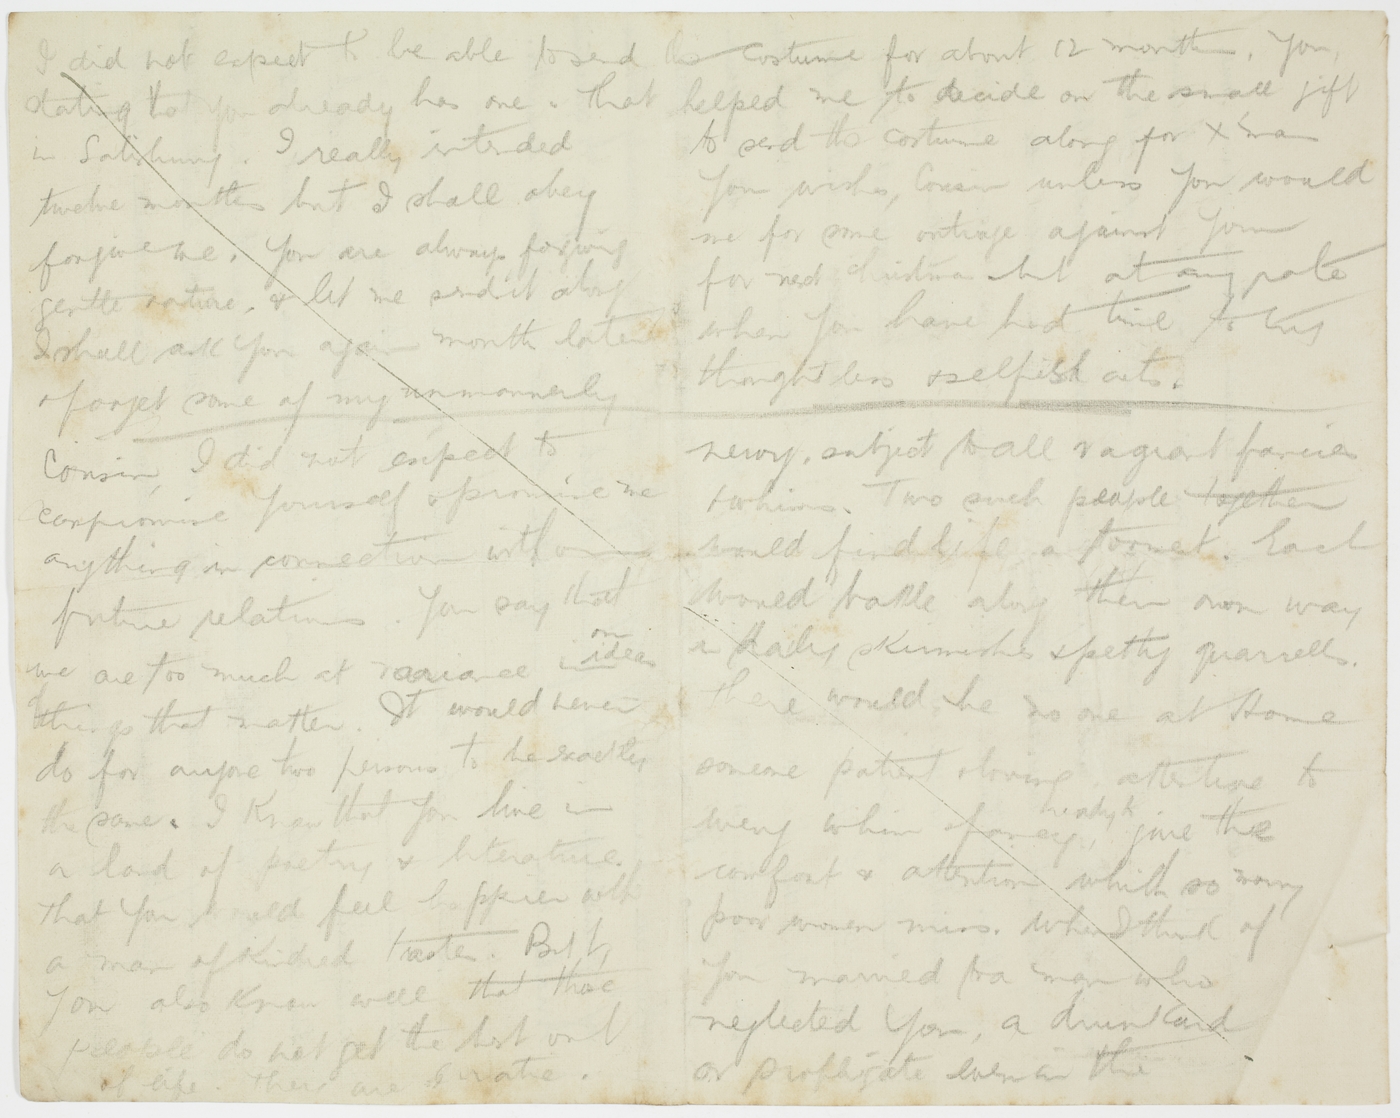 I did not expect to be able to send the costume for about 12 months. You,
stating that you already has one. That helped me to decide on the small gift
in Salisbury. I really intended to send the costume along for X'mas
twelve months but I shall obey your wishes, Cousin unless you would
forgive me. You are always forgiving me for some outrage against your
gentle nature. & let me send it along for next christmas but at any rate
I shall ask you again month later when you have had time to try
& forget some of my unmannerly thoughtless & selfish acts.
Cousin, I did not expect to
compromise yourself & promise me
anything in connection with our
future relations. You say that
we are too much at variance in on ideas
things that matter. It would never
do for anyone two persons to be exactly
the same. I know that you live in
a land of poetry & literature.
that you would feel happier with
a man of kindred tastes. But
you also know well that those
people do not get the best out
of life. They are erratic.
nervy, subject to all vagrant fancies
& whims. Two such people together
would find life a torment. Each
would battle along their own way
in daily skirmishes & petty quarrells.
there would be no one at Home
someone patient & loving, attentive to
every whim & fancy, ready to give the
comfort & attention which so many
poor women miss. When I think of
you married to a man who
neglected you, a drunkard
or profligate even in the